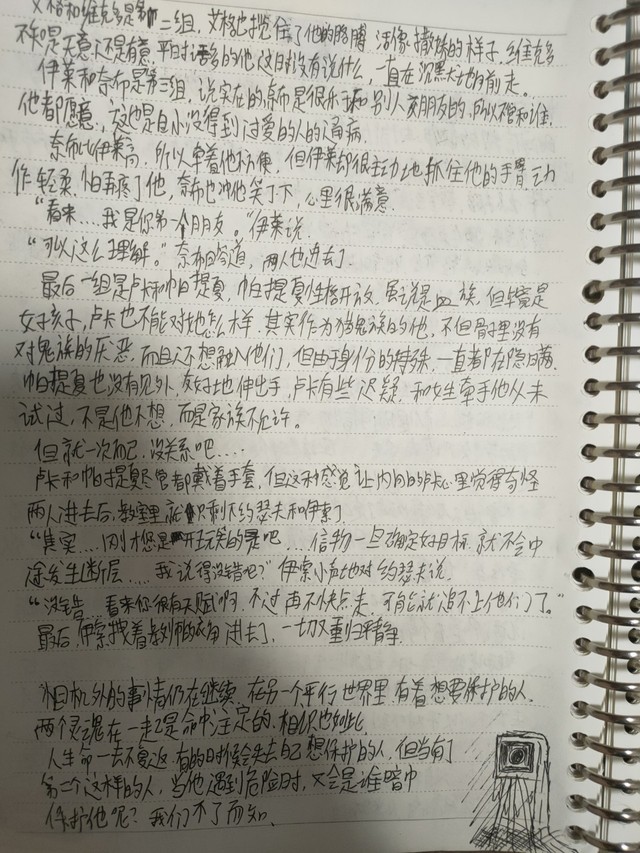 艾格和维克多是第二组，艾格也揽住了他的胳膊，活像撒娇的样子，维克多
不知是天意还是有意，平时话多的他这时没有说什么，一直在沉默地向前走。
伊莱和奈布是第三组，说实在的奈布是很乐和别人交朋友的，所以不管和谁，
他都愿意，这也是自小没得到过爱的人的通病。
奈布比伊莱高，所以牵着他方便，但伊莱却很主动地抓住他的手臂，动
作轻柔，怕再疼了他，奈布也冲他笑了下，心里很满意.
“看来....我是你第一个朋友。”伊莱说.
“可以这么理解。”奈布回答道，两人也进去了.
最后一组是卢卡和帕提夏，帕提夏性格开放，虽说是血族，但毕竟是
女孩子，卢卡也不能对她怎么样，其实作为的他，不但骨子里没有
对鬼族的厌恶，而且还想融入他们，但由于身份的特殊，一直都在隐瞒.
帕提夏也没有见外，友好地伸出手，卢卡有些迟疑，和女生牵手他从未
试过，不是他不想，而是家族不允许。
但就一次而已，没关系吧....
卢卡和帕提夏尽管都戴着手套，但这种感觉让内向的卢卡心里觉得奇怪
两人进去后，教室里就只剩下约瑟夫和伊索了
“其实....刚才您是开玩笑的是吧....信物一旦确定好目标，就不会中
途发生断层....我说得没错吧？”伊索小声地对约瑟夫说.
“没错，看来你很有天赋啊，不过再不快点走，可能就追不上他们了。”
最后，伊索拽着教师的衣角进去了，一切又重归平静.
相机外的事情仍在继续，在另一个平行世界里，有着想要保护的人.
两个灵魂在一起是命中注定的，相识也如此
人生命一去不复返，有的时候会失去自己想保护的人，但当有了
第二个这样的人，当他遇到危险时，又会是谁暗中
保护他呢？我们不了而知.